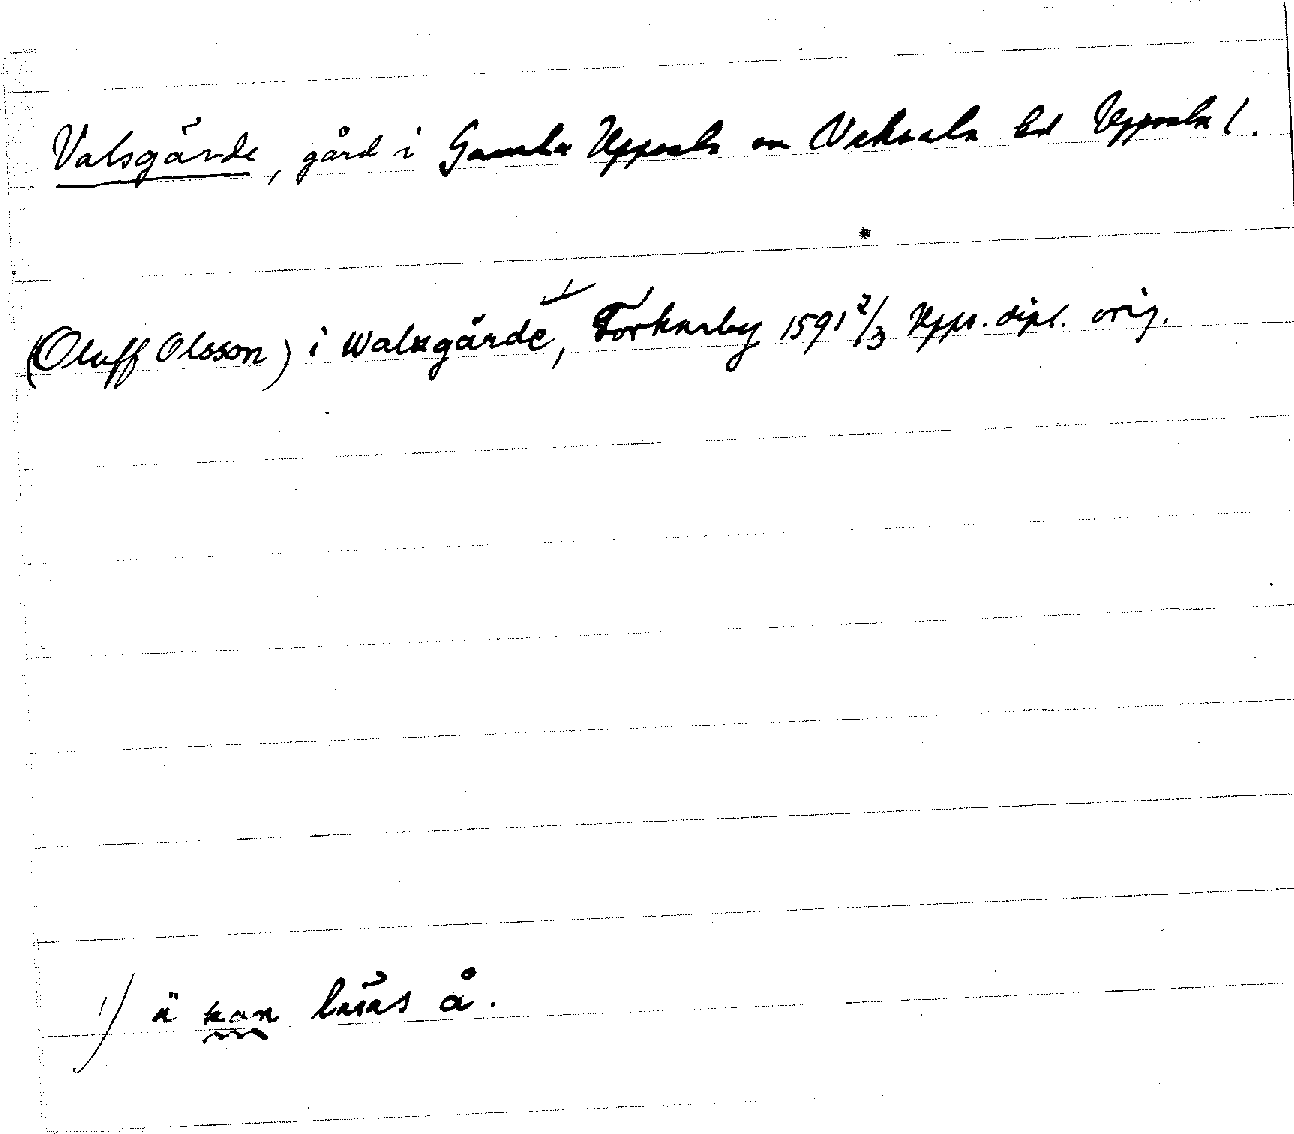 Valsgärde, gård i Gamla Uppsala sn Vaksala hd Uppsala l.
(Oluff Olsson) i Walsgärde, Torkarby 1591 2/3 Upps. dipl. orig.
1) ä kan läsas å.